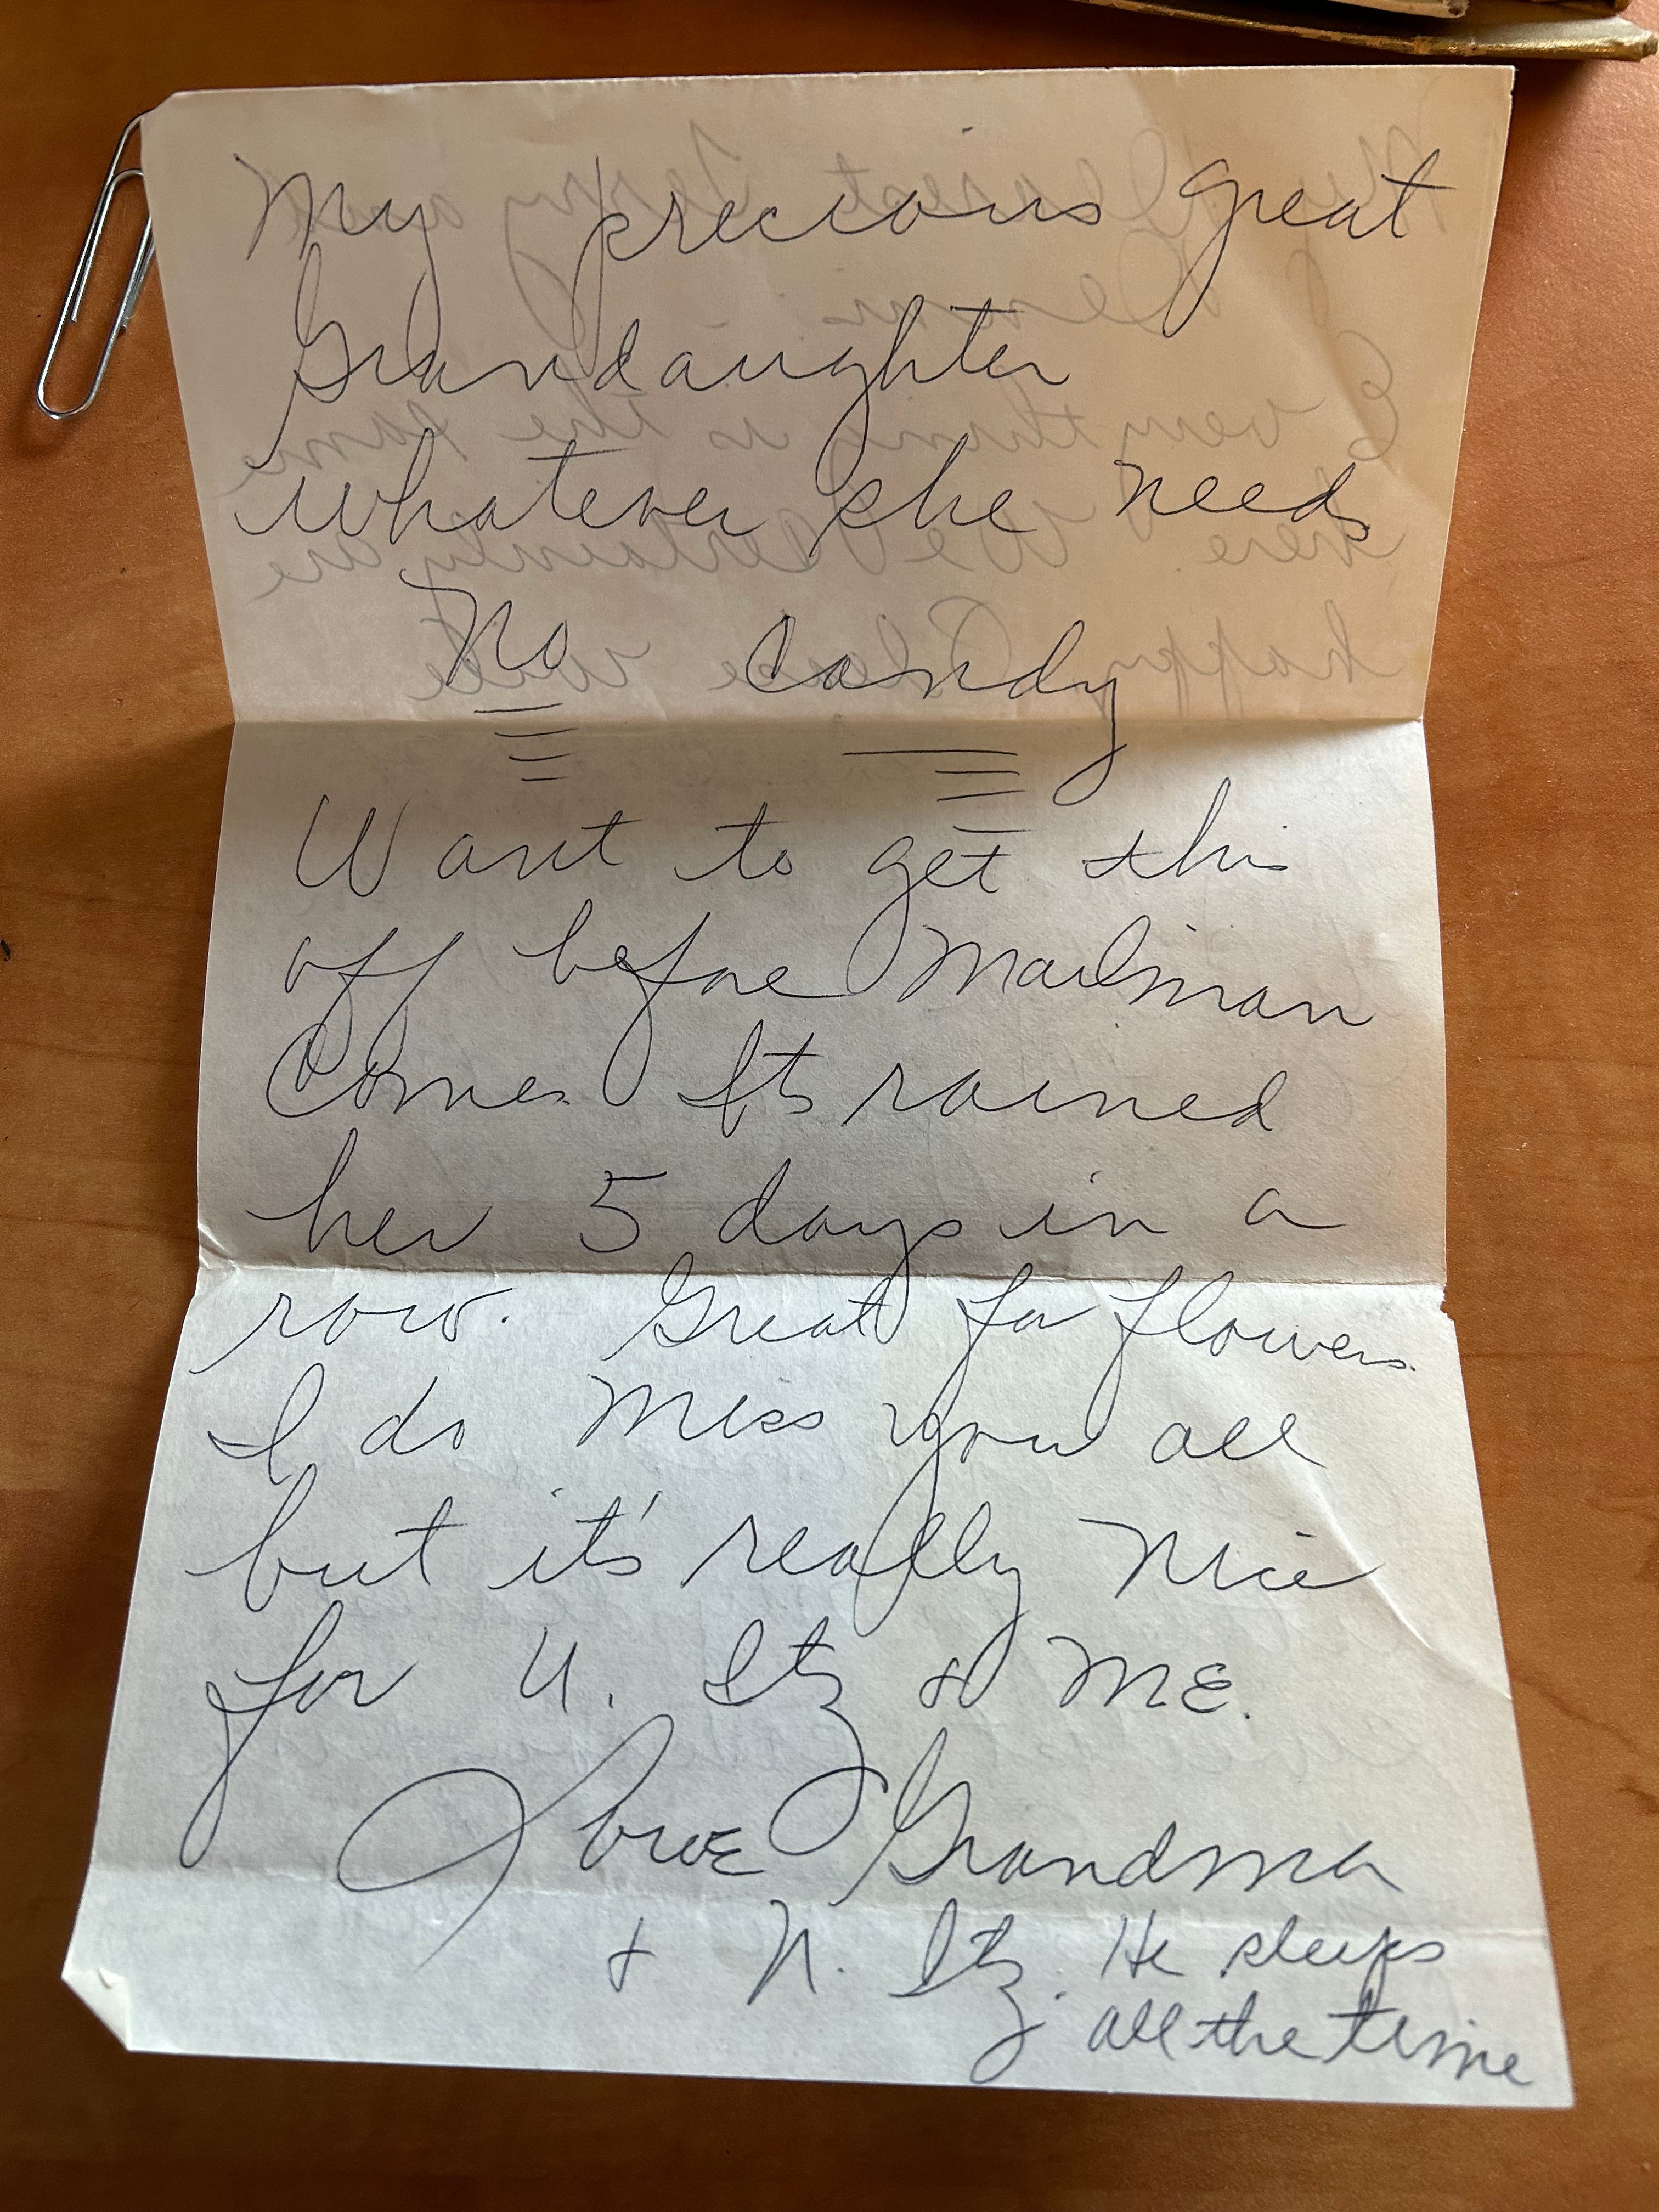 My precious great
Grandaughter
whatever she needs
No Candy
Want to get this
off before Mailman
Comes Its rained
her 5 days in a
row. Great for flowers.
I do Miss you all
but it's really Nice
for U. Itz & ME.
Love Grandma
& U. Itz. He sleeps
all the time